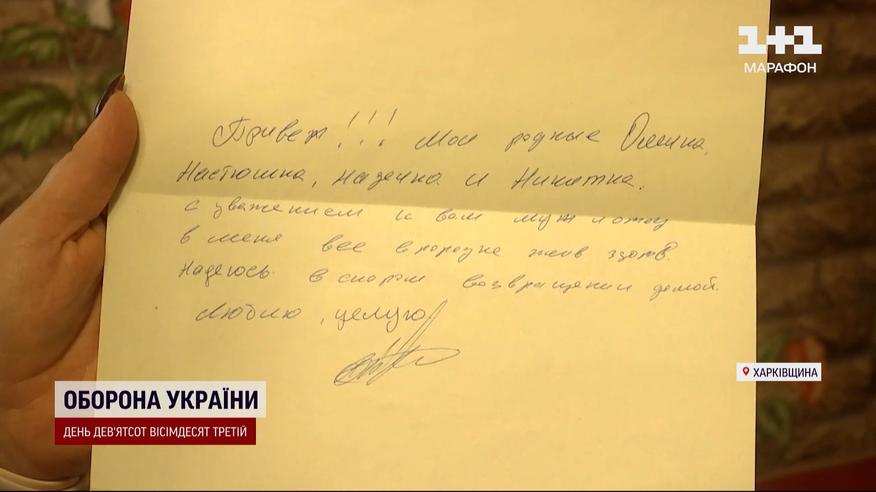 1+1
МАРАФОН
Привет!!! Мои родные Олечка,
Настюшка, Надечка и Никитка.
с уважением к вам муж и отец
в меня все в порядке жив здотв.
Надеюсь в скором возвращении домой.
Люблю, целую.
ХАРКІВЩИНА
ОБОРОНА УКРАЇНИ
ДЕНЬ ДЕВ'ЯТСОТ ВІСІМДЕСЯТ ТРЕТІЙ